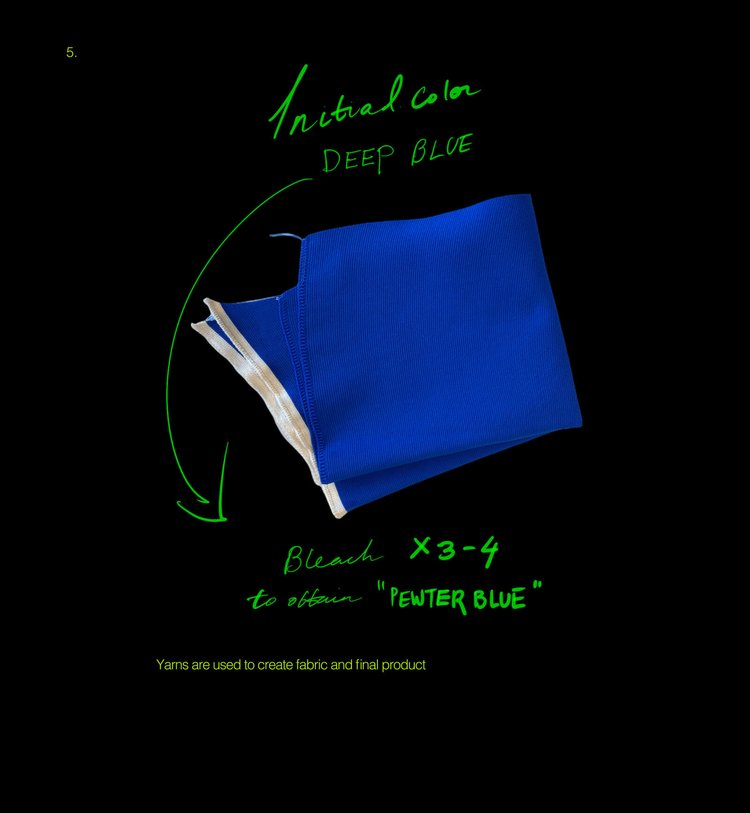 5.
Initial color
DEEP BLUE
Bleach x3-4
to obtain "PEWTER BLUE"
Yarns are used to create fabric and final product